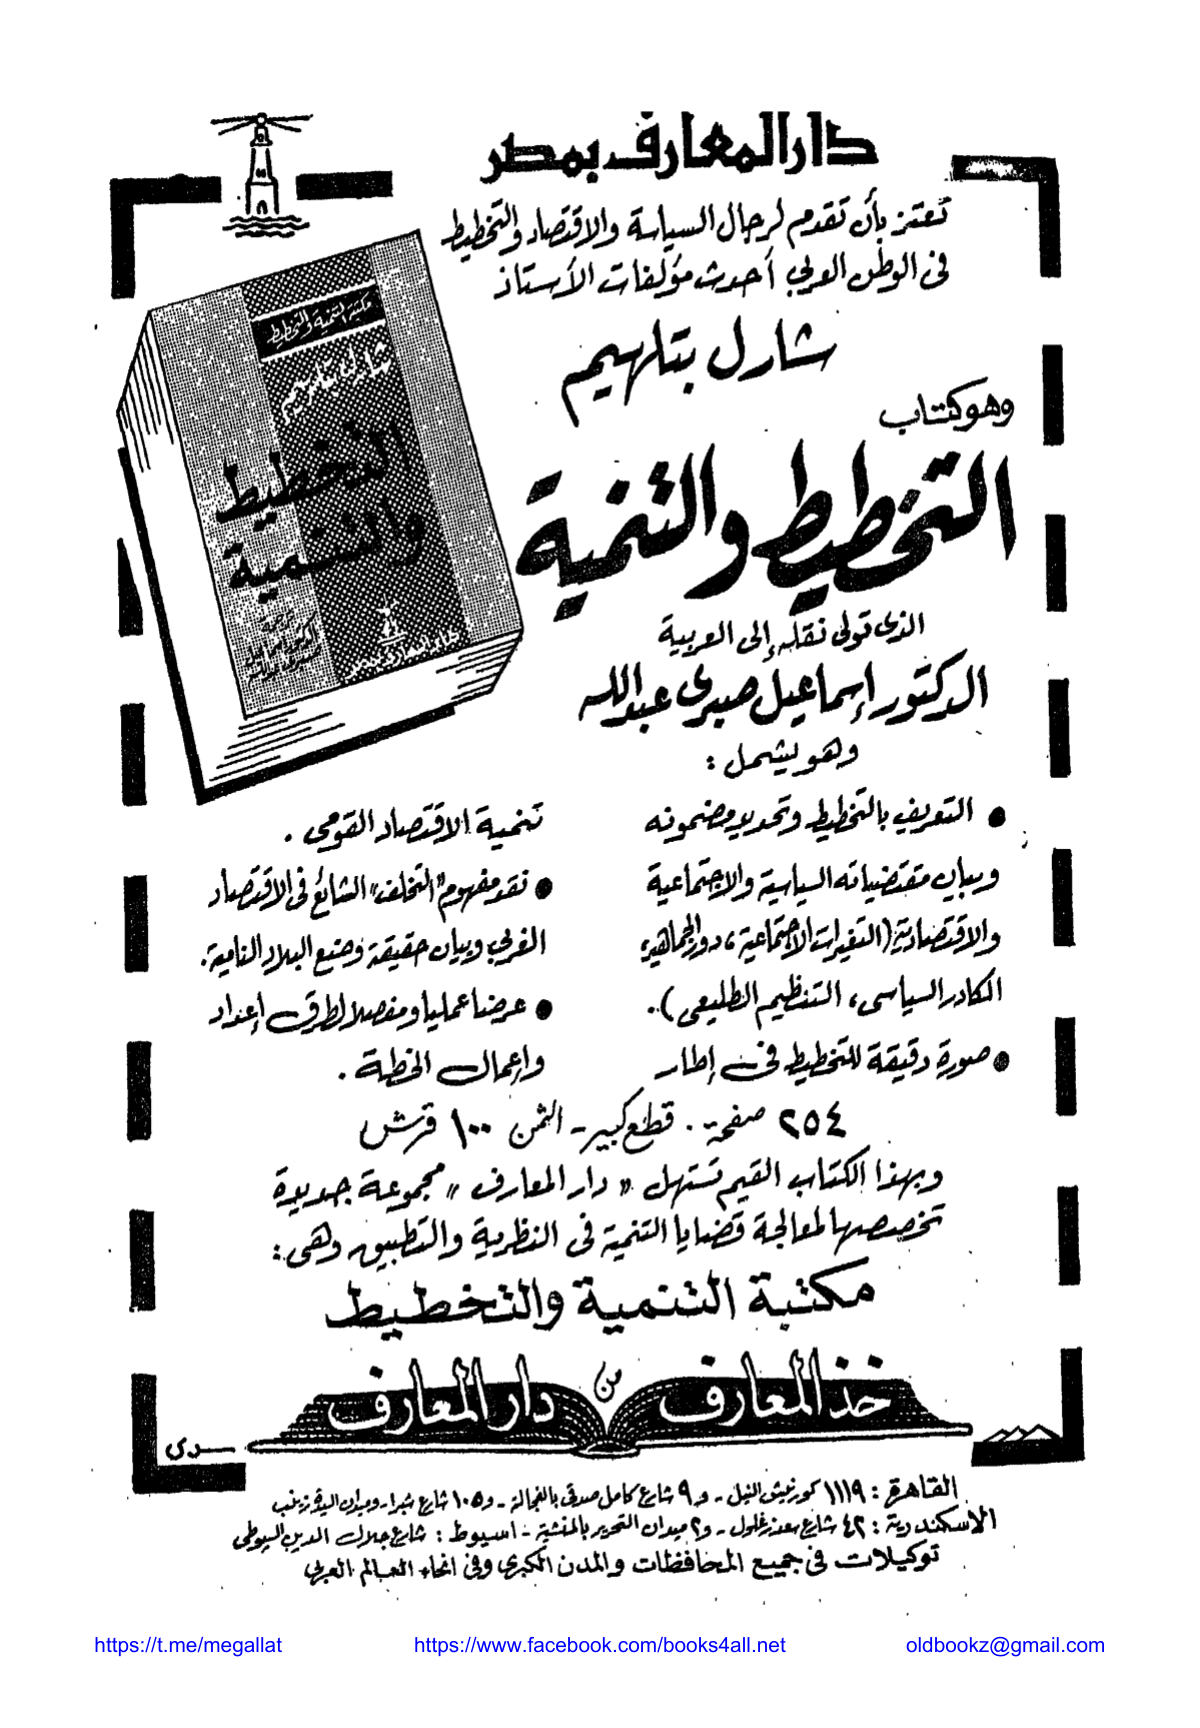 دار المعارف بمصر
تعتز بأن تقدم لرجال السياسة والاقتصاد والتخطيط
فى الوطن العربى أحدث مؤلفات الأستاذ
شارل بتلهيم
وهو كتاب
التخطيط والتنمية
الذى تولى نقله إلى العربية
الدكتور إسماعيل صبرى عبدالله
وهو يشمل :
مكتبة التنمية والتخطيط
شارل بتلهيم
التخطيط
والتنمية
ترجمة
دار المعارف بمصر
● التعريف بالتخطيط وتحديد مضمونه
وبيان مقتضياته السياسية والاجتماعية
والاقتصادية (التغيرات الاجتماعية، دور الجماهير،
الكادر السياسى، التنظيم الطليعى).
● صورة دقيقة للتخطيط فى إطار
تنمية الاقتصاد القومى .
● نقد مفهوم "التخلف" الشائع فى الاقتصاد
الغربى وبيان حقيقة وضع البلاد النامية.
● عرضا عمليا ومفصلا لطرق إعداد
وإعمال الخطة .
٢٥٤ صفحة . قطع كبير - الثمن ١٠٠ قرش
وبهذا الكتاب القيم تستهل " دار المعارف " مجموعة جديدة
تخصصها لمعالجة قضايا التنمية فى النظرية والتطبيق وهى :
مكتبة التنمية والتخطيط
خذ المعارف من دار المعارف
القاهرة : ١١١٩ كورنيش النيل - و ٩ شارع كامل صدقى بالفجالة - و ١٠٥ شارع شبرا - وميدان السيدة زينب
الاسكندرية : ٤٢ شارع سعد زغلول - و ٢ ميدان التحرير بالمنشية - اسيوط : شارع جلال الدين السيوطى
توكيلات فى جميع المحافظات والمدن الكبرى وفى انحاء العالم العربى
https://t.me/megallat
https://www.facebook.com/books4all.net
oldbookz@gmail.com